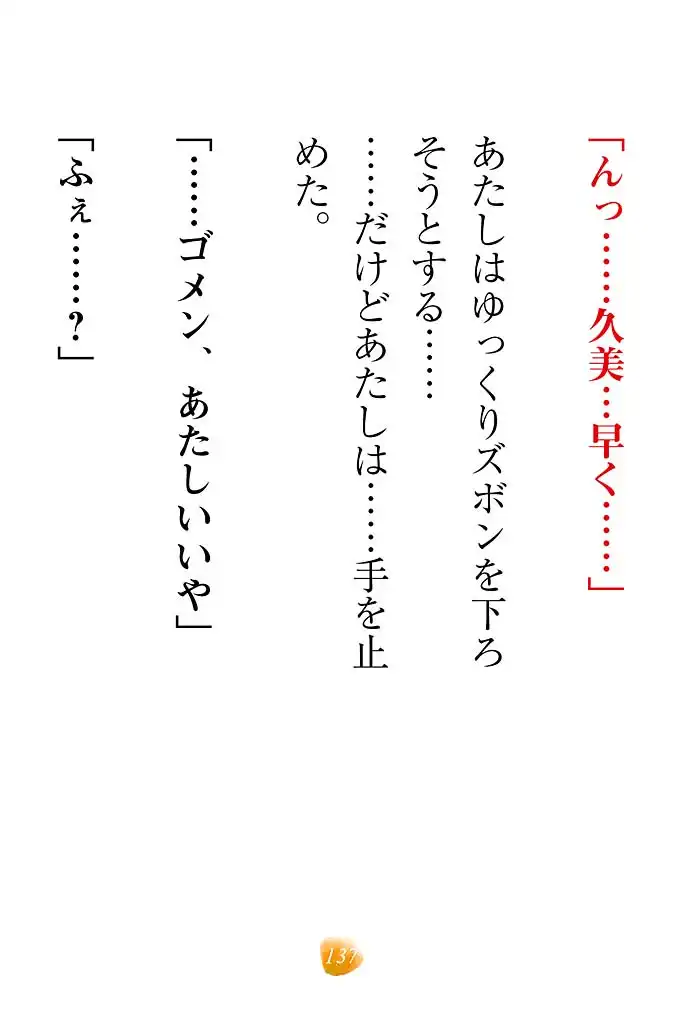 「んっ……久美…早く……」
あたしはゆっくりズボンを下ろ
そうとする……
……だけどあたしは……手を止
めた。
「……ゴメン、あたしいいや」
「ふぇ……?」
137